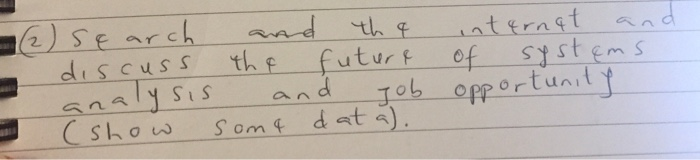 (2) Search and the internet and
discuss the future of systems
analysis and Job opportunity
(show some data).